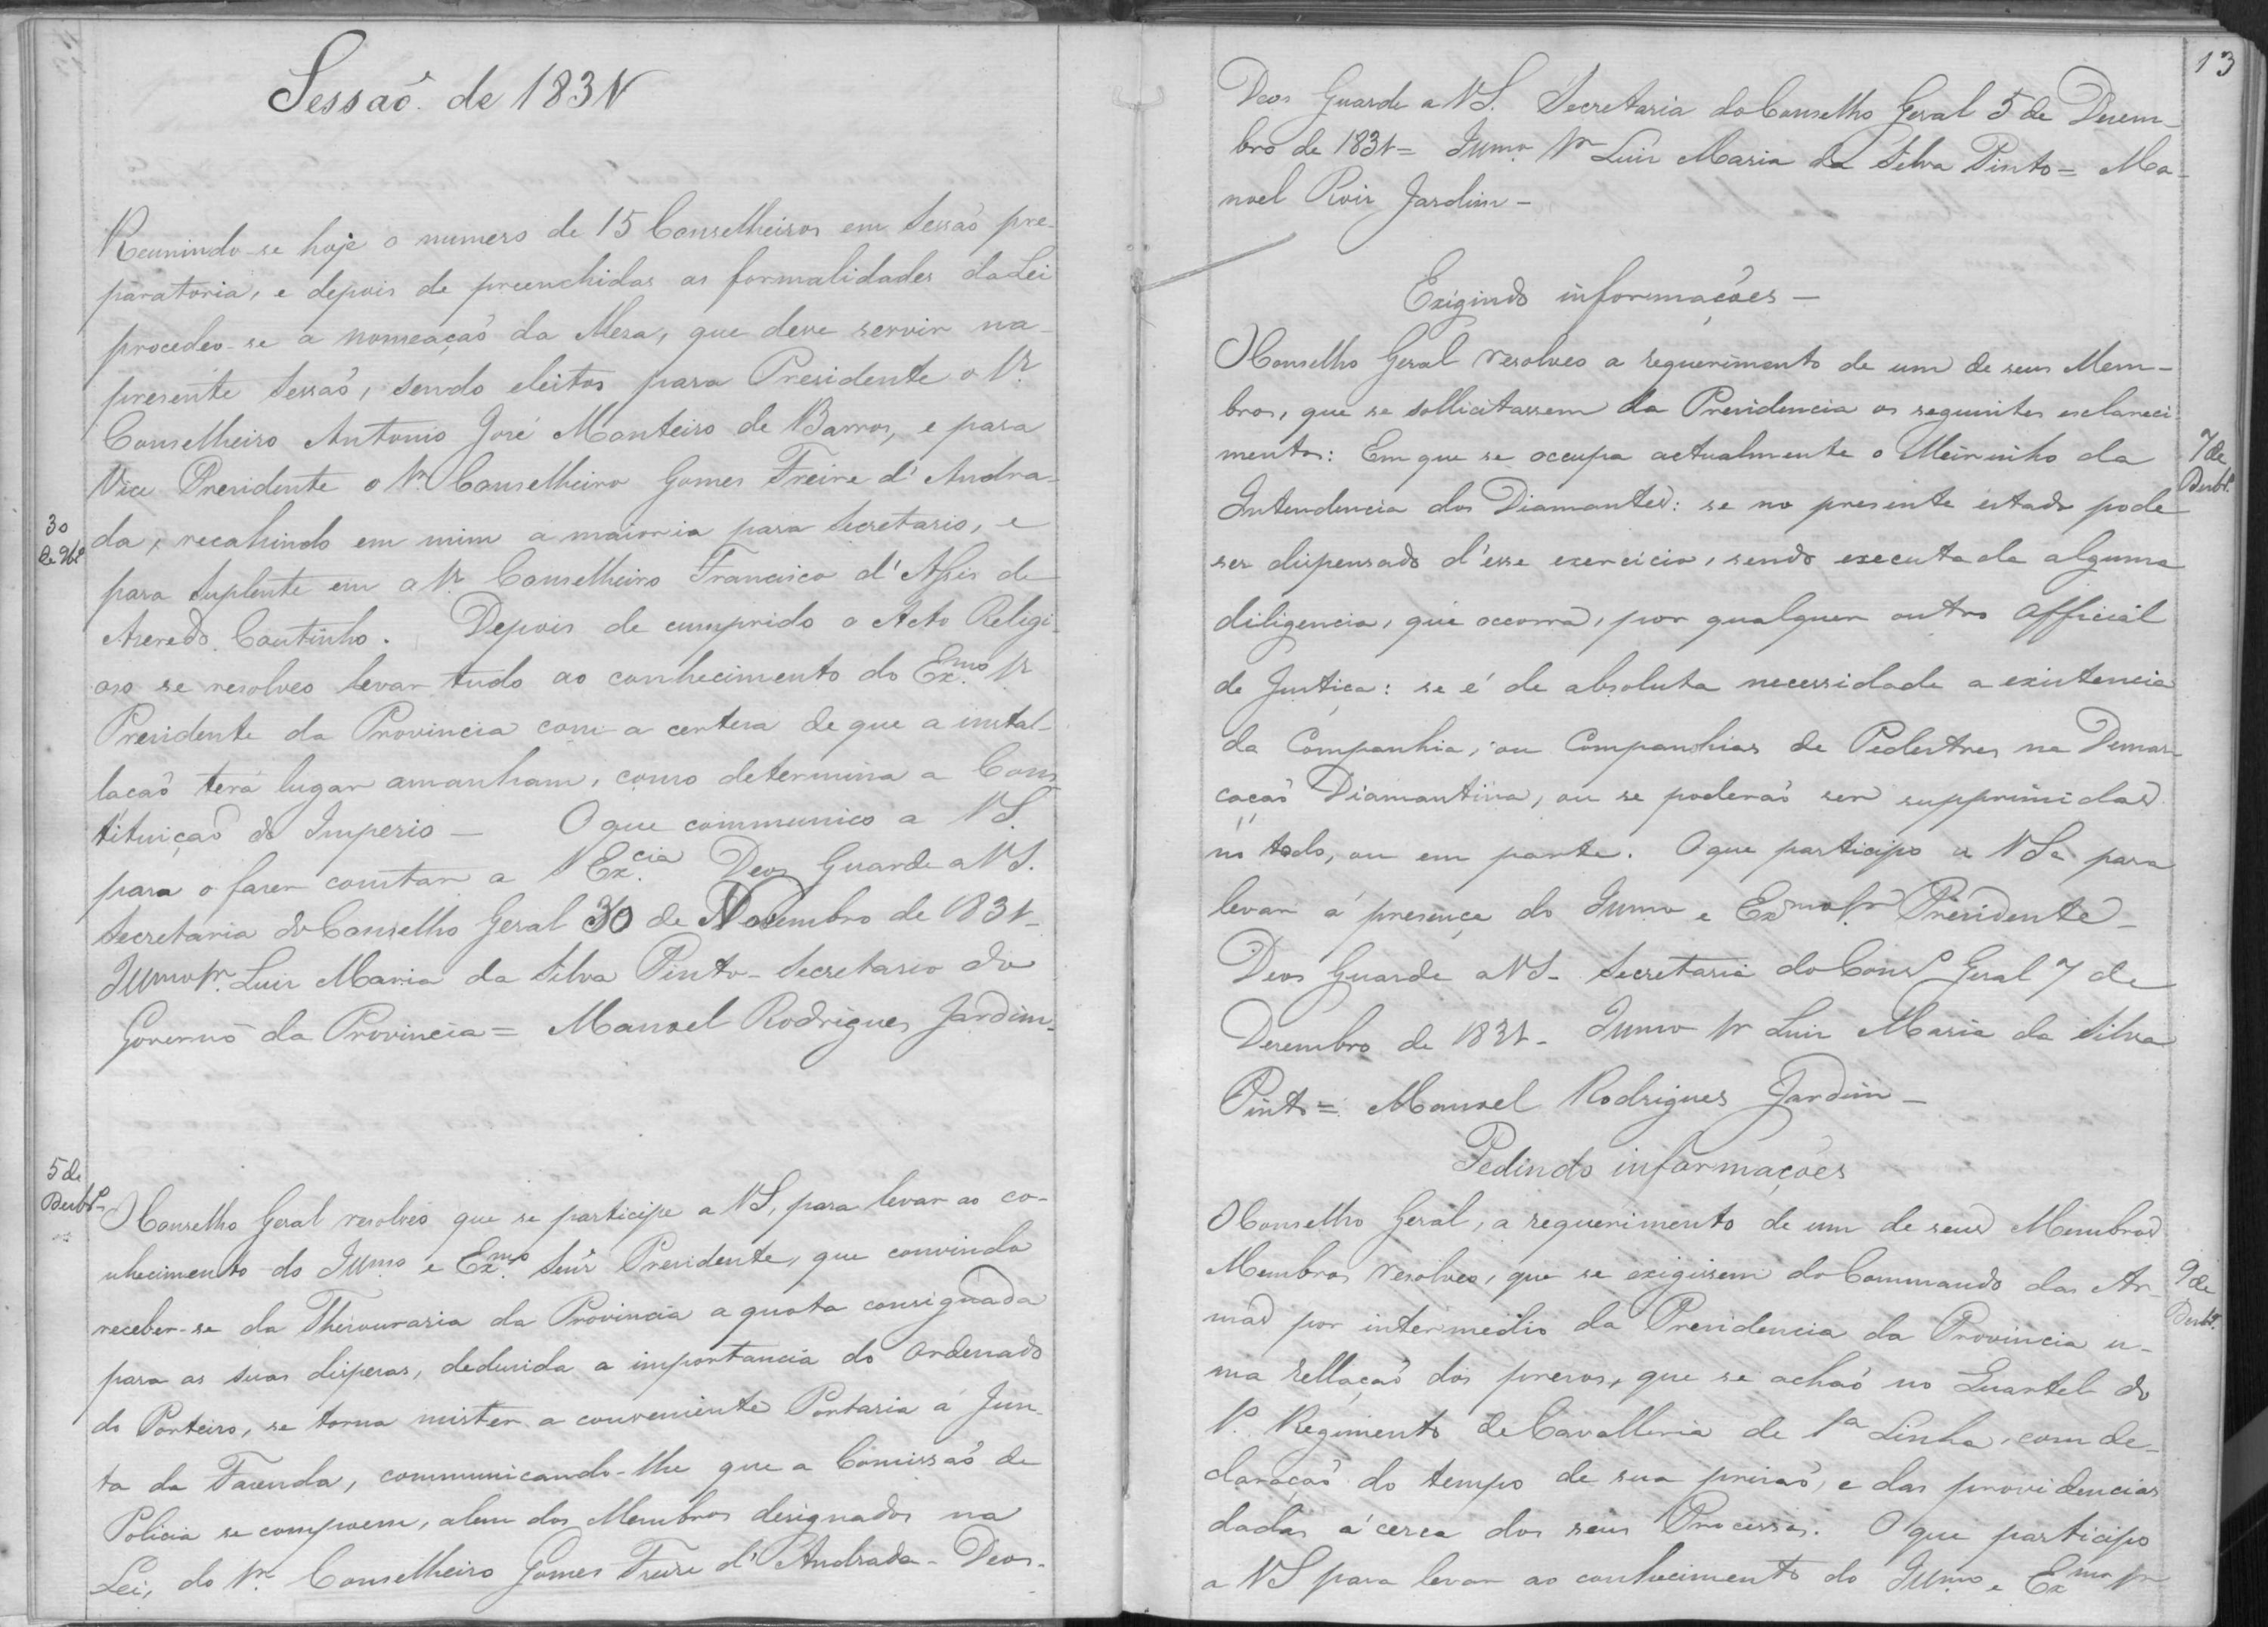 Sessaõ de 1831
Reunindo-se hoje o numero de 15 Conselheiros em Sessaõ pre-
paratoria, e depois de preenchidas as formalidades da Lei
procedeo-se a nomeaçaõ da Meza, que deve servir na
presente Sessaõ, sendo eleitos para Presidente o Sr.
Conselheiro Antonio José Monteiro de Barros, e para
Vice Presidente o Sr. Conselheiro Gomes Freire d'Andra-
30
de 9br.o
da, recahindo em mim a maioria para Secretario, e
para Suplente em o Sr. Conselheiro Francisco d'Assis de
Azeredo Coutinho. Depois de cumprido o Acto Religi-
oso se resolveo levar tudo ao conhecimento do Ex.mo Sr
Presidente da Provincia com a certeza de que a instal-
lacaõ terá lugar amanham, como determina a Cons-
tituiçaõ do Imperio — O que communico a VS.
para o fazer constar a S Ex.cia Deos Guarde a VS.
Secretaria do Conselho Geral 30 de Novembro de 1831-
Illmo Sr. Luiz Maria da Silva Pinto - Secretario do
Governo da Provincia = Manoel Rodrigues Jardim-
5 de
Dezbr.o
O Conselho Geral resolveo que se participe a VS, para levar ao co-
nhecimento do Illmo e Exmo Senr Presidente, que convindo
receber-se da Thesouraria da Provincia a quota consignada
para as suas dispezas, deduzida a importancia do Ordenado
do Porteiro, se torna mister a conveniente Portaria á Jun-
ta da Fazenda, communicando-lhe que a Comissaõ de
Policia se compoem, alem dos Membros designados na
Lei, do Sr. Conselheiro Gomes Freire d'Andrada - Deos-
13
Deos Guarde a VS. Secretaria do Conselho Geral 5 de Dezem-
bro de 1831= Illmo Sr Luiz Maria da Silva Pinto= Ma-
noel Roiz Jardim-
Exigindo informações —
O Conselho Geral resolveo a requerimento de um de seus Mem-
bros, que se sollicitassem da Presidencia os seguintes esclareci-
7 de
Dezbr.o
mentos: Em que se occupa actualmente o Meirinho da
Intendencia dos Diamantes: se no presente estado pode
ser dispensado d'esse exercicio, sendo executada alguma
diligencia, que occorra, por qualquer outro Official
de Justiça: se é de absoluta necessidade a existencia
da Companhia, ou Companhias de Pedestres na Demar-
cacaõ Diamantina, ou se poderaõ ser supprimidas
no todo, ou em parte. O que participo a VSa para
levar á presença do Illmo e Exmo Sr Presidente-
Deos Guarde a VS- Secretaria do Conso Geral 7 de
Dezembro de 1831- Illmo Sr Luiz Maria da Silva
Pinto= Manoel Rodrigues Jardim-
Pedindo informações
O Conselho Geral, a requerimento de um de seus Membros
9 de
Dezbr.o
Membros resolveo, que se exigissem do Commando das Ar-
mas por intermedio da Presidencia da Provincia u-
ma rellaçaõ dos prezos, que se achaõ no Quartel do
1o. Regimento de Cavalleria de 1a Linha, com de-
claraçaõ do tempo de sua prizaõ, e das providencias
dadas á cerca dos seus Processos. O que participo
a VS para levar ao conhecimento do Illmo e Exmo Sr